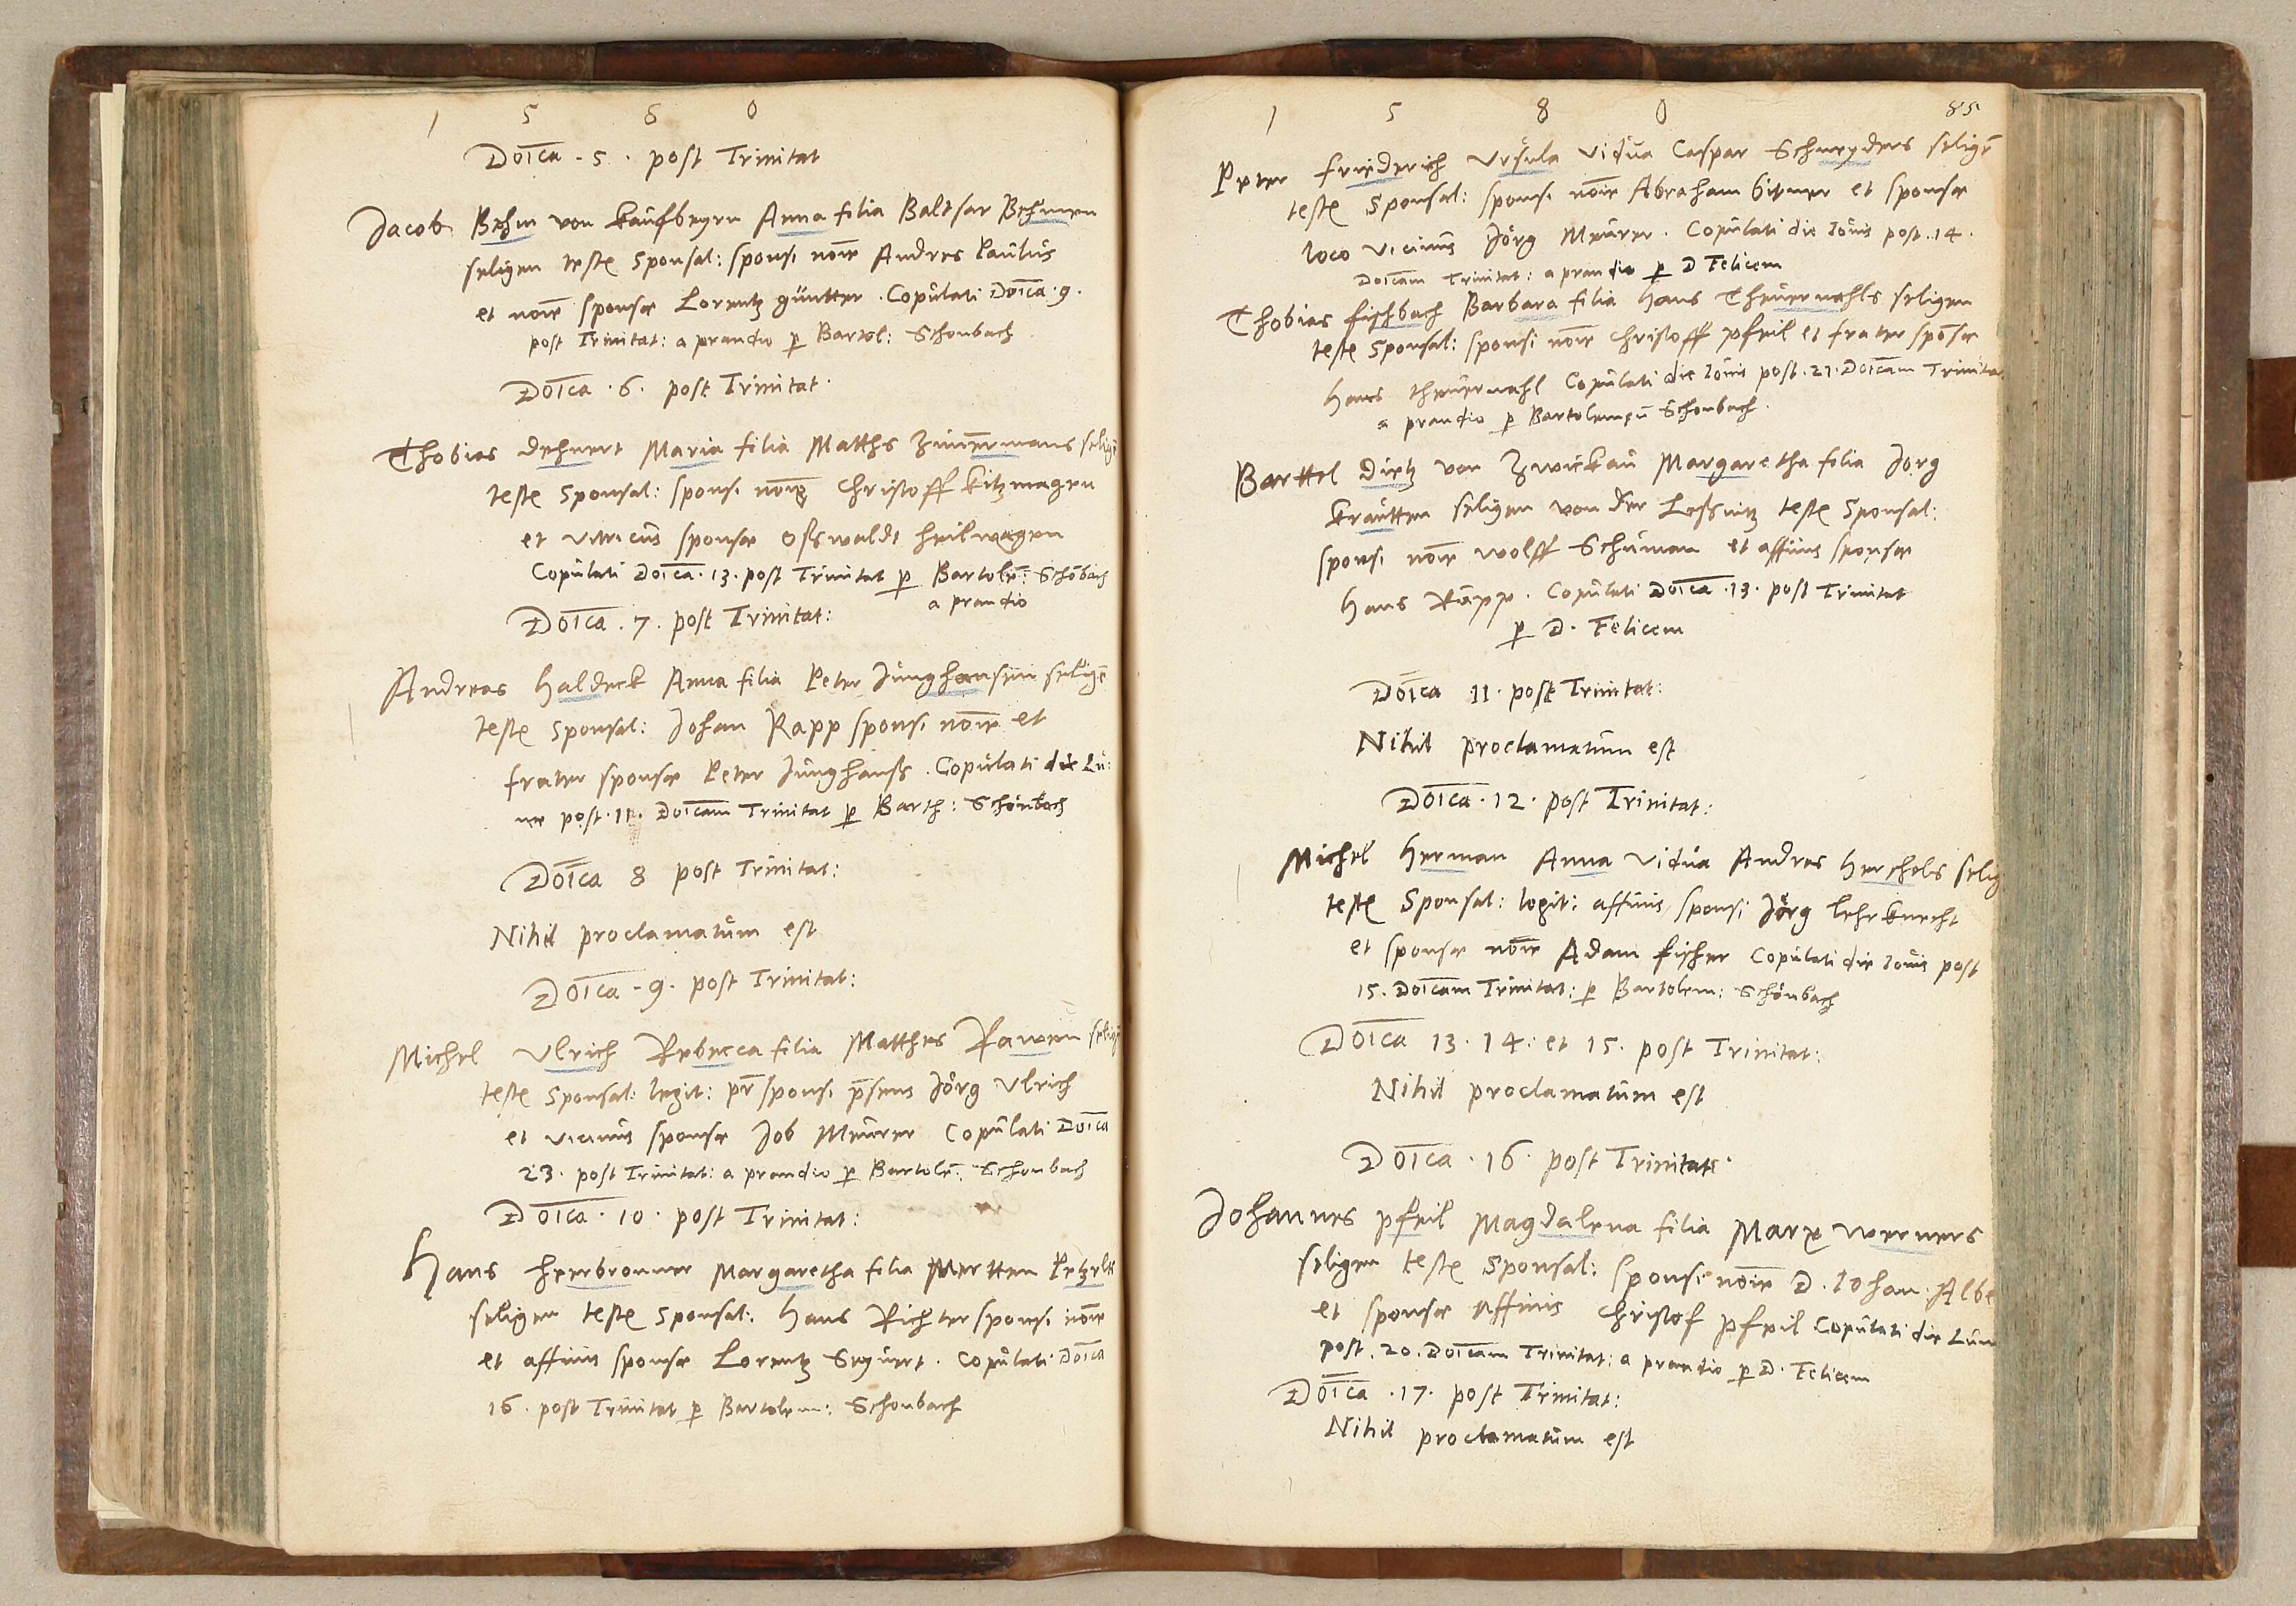 1 5 8 0
Doi͞ca · 5 · post Trinitat
Jacob Behm von kaufbeyrn Anna filia Baltsar Behmen
seligen teste Sponsal: sponsi noi͞e Andres Paulus
et noi͞e sponsæ Lorentz güntter · Copulati Doi͞ca · 9 ·
post Trinitat: a prandio ꝑ Bartol: Schonbach
Doi͞ca · 6 · post Trinitat ·
Thobias dehnert Maria filia Matths Zim̄ermans selige͞
teste Sponsal: sponsi noi͞e Christoff kitzmagen
et vitricus sponsæ Oßwaldt heilwagen
Copulati Doi͞ca · 13 · post Trinitat ꝑ Bartole͞: Schönbach
a prandio
Doi͞ca · 7 · post Trinitat:
Andreas haldeck Anna filia Peter Junghansen selige͞
teste Sponsal: Johan Rapp sponsi noi͞e et
frater sponsæ Peter Junghanß · Copulati die Lu:
næ post · 11 · Doi͞cam Trinitat ꝑ Barth: Schönbach
Doi͞ca 8 post Trinitat:
Nihil proclamatum est
Doi͞ca · 9 · post Trinitat:
Michel Ulrich Rebecca filia Matthes Rawen selige͞
teste Sponsal: legit: pr͞ sponsi p͞sens Jörg Ulrich
et vicinus sponsæ Job Meurer Copulati Doi͞ca
23 · post Trinitat: a prandio ꝑ Bartole͞: Schonbach
Doi͞ca · 10 · post Trinitat:
Hans heerbronner Margaretha filia Mertten Petzelts
seligen teste Sponsal: Hans Richter sponsi noi͞e
et affinis sponsæ Lorentz Seyvert · Copulati Doi͞ca
16 · post Trinitat ꝑ Bartolem: Schonbach
1 5 8 0 85
Peter friederich Ursula vidua Caspar Schneyders selige͞
teste Sponsal: sponsi noi͞e Abraham bitner et sponsæ
loco vicinus Jörg Meurer · Copulati die Iovis post · 14 ·
Doi͞cam Trinitat: a prandio ꝑ D Felicem
Thobias fischbach Barbara filia Hans Theuernahls seligen
teste Sponsal: sponsi noi͞e Christoff pfeil et frater spo͞sæ
Hans theuernahl Copulati die Iovis post · 21 · Doi͞cam Trinitat
a prandio ꝑ Bartolemęu Schonbach ·
Barttel dietz von Zwickau Margaretha filia Jörg
krautten seligen von der Leßnitz teste Sponsal:
sponsi noi͞e wolff Schuman et affinis sponsæ
Hans Rapp · Copulati Doi͞ca · 13 · post Trinitat
ꝑ D · Felicem
Doi͞ca 11 · post Trinitat:
Nihil proclamatum est
Doi͞ca · 12 · post Trinitat:
Michel Herman Anna vidua Andres Herschels selig
teste Sponsal: legit: affinis sponsi Jörg lehrknecht
et sponsæ noi͞e Adam fischer Copulati die Iovis post
15 · Doi͞cam Trinitat: ꝑ Bartolem: Schönbach
Doi͞ca 13 · 14 · et 15 · post Trinitat:
Nihil proclamatum est
Doi͞ca · 16 · post Trinitat:
Johannes pfeil Magdalena filia Marx werners
seligen teste Sponsal: sponsi noi͞e D · Iohan · Albe
et sponsæ affinis Christof pfeil Copulati die Lun
post · 20 · Doi͞cam Trinitat: a prandio ꝑ D · Felicem
Doi͞ca · 17 · post Trinitat:
Nihil proclamatum est